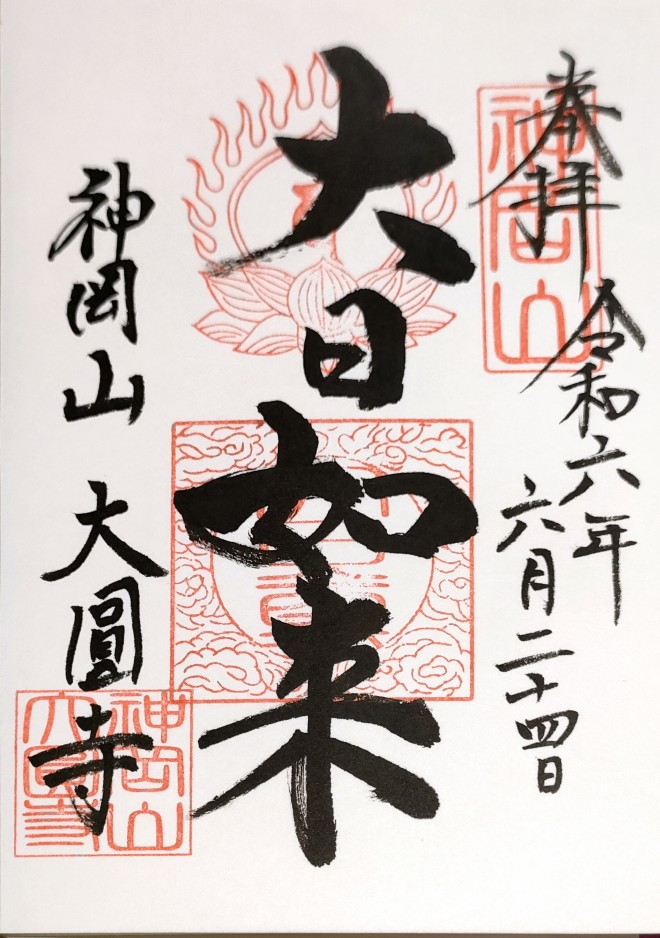 奉拝
令和六年
六月二十四日
大日如来
神岡山 大圓寺
神岡山
神岡山
大圓寺